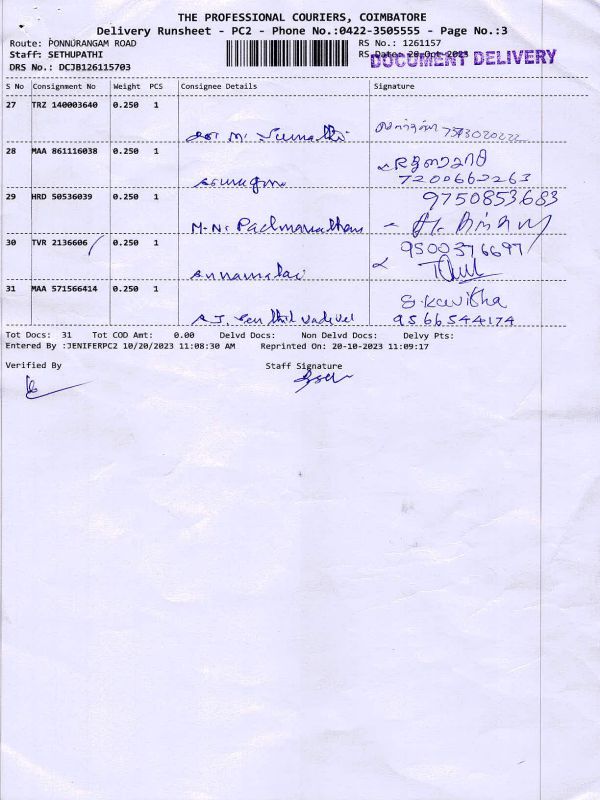 THE PROFESSIONAL COURIERS, COIMBATORE
Delivery Runsheet - PC2 - Phone No.:0422-3505555 - Page No.:3
Route: PONNURANGAM ROAD RS No.: 1261157
Staff: SETHUPATHI RS Date: 20-Oct-2023
DOCUMENT DELIVERY
DRS No.: DCJB126115703
S No Consignment No Weight PCS Consignee Details Signature
27 TRZ 140003640 0.250 1
28 MAA 861116038 0.250 1
7200662263
29 HRD 50536039 0.250 1 9750853683
M.N. Padmanathan
30 TVR 2136606 0.250 1 9500376697
Annamalai
31 MAA 571566414 0.250 1 S. Kavitha
A.J. Senthil Vadivel 9566544174
Tot Docs: 31 Tot COD Amt: 0.00 Delvd Docs: Non Delvd Docs: Delvy Pts:
Entered By :JENIFERPC2 10/20/2023 11:08:30 AM Reprinted On: 20-10-2023 11:09:17
Verified By Staff Signature